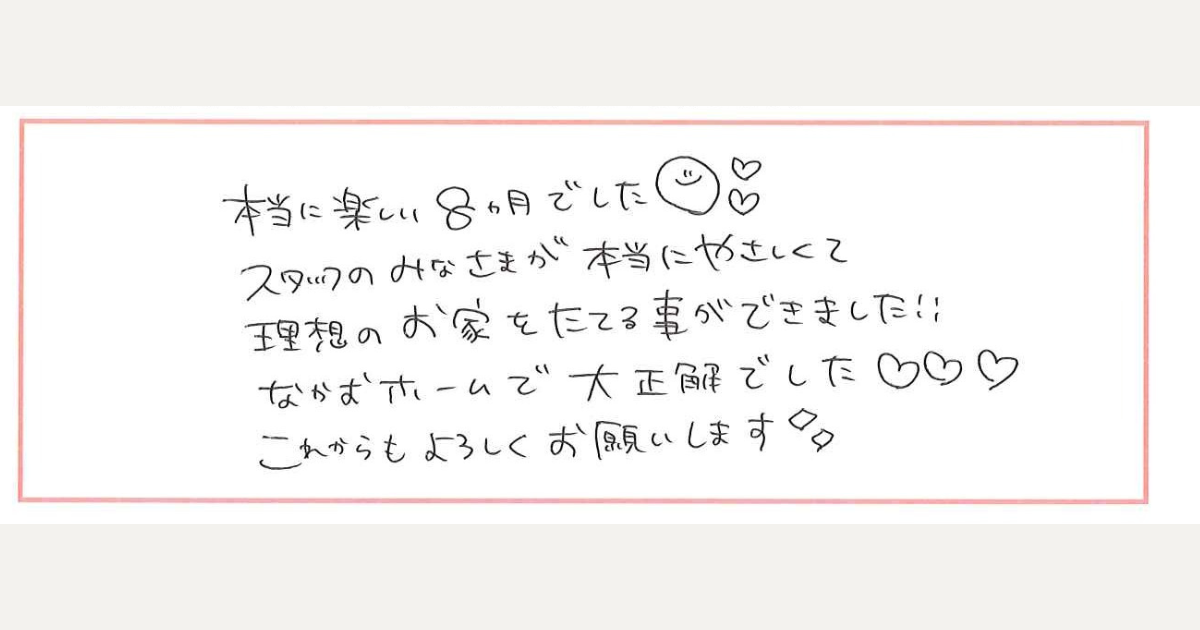 本当に楽しい8ヵ月でした
スタッフのみなさまが本当にやさしくて
理想のお家をたてる事ができました!!
なかおホームで大正解でした♡♡♡
これからもよろしくお願いします